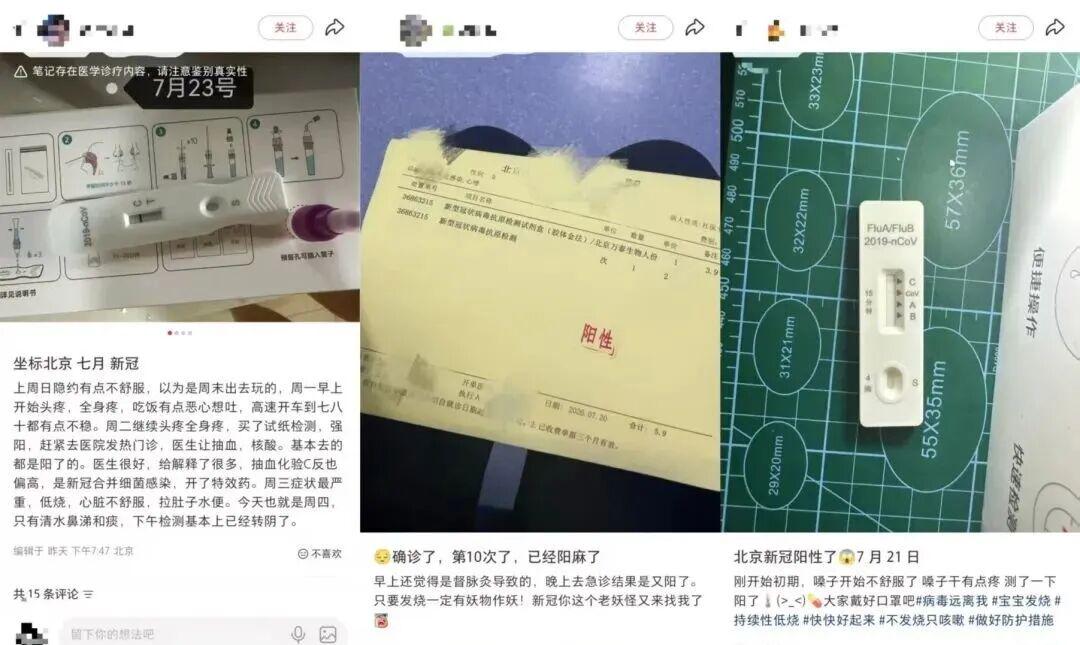 关注
笔记存在医学诊疗内容，请注意鉴别真实性
7月23号
2
3
4
×10
C
T
S
2019-nCoV
预留孔可插入管子
详见说明书
坐标北京 七月 新冠
上周日隐约有点不舒服，以为是周末出去玩的，周一早上
开始头疼，全身疼，吃饭有点恶心想吐，高速开车到七八
十都有点不稳。周二继续头疼全身疼，买了试纸检测，强
阳，赶紧去医院发热门诊，医生让抽血，核酸。基本去的
都是阳了的。医生很好，给解释了很多，抽血化验C反也
偏高，是新冠合并细菌感染，开了特效药。周三症状最严
重，低烧，心脏不舒服，拉肚子水便。今天也就是周四，
只有清水鼻涕和痰，下午检测基本上已经转阴了。
编辑于 昨天 下午7:47 北京
不喜欢
共 15 条评论
留下你的想法吧
关注
北京
性别
处置单号
项目名称
单位 数量 单价 备注
病人性质：社保
费别
36863215 新型冠状病毒抗原检测试剂盒（胶体金法）/北京万泰生物 人份 1 3.9
36863215 新型冠状病毒抗原检测 次 1 2
阳性
开单医
执行人
日期：2026.07.20
合计：5.9
2.已收费单据三个月有效。
😔确诊了，第10次了，已经阳麻了
早上还觉得是督脉灸导致的，晚上去急诊结果是又阳了。
只要发烧一定有妖物作妖！新冠你这个老妖怪又来找我了
关注
510
500
490
480
470
460
450
33X23mm
57X36mm
32X22mm
31X21mm
55X35mm
29X20mm
FluA/FluB
2019-nCoV
C
CoV
A
B
15分钟
4滴
S
便捷操作
快速检测
北京新冠阳性了😱7 月 21 日
刚开始初期，嗓子开始不舒服了 嗓子干有点疼 测了一下
阳了🌡️(>_<)💊大家戴好口罩吧#病毒远离我 #宝宝发烧 #
持续性低烧 #快快好起来 #不发烧只咳嗽 #做好防护措施